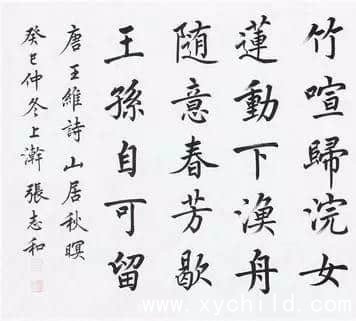 竹喧歸浣女
蓮動下漁舟
随意春芳歇
王孫自可留
唐王維詩山居秋暝
癸巳仲冬上澣張志和
www.xychild.com